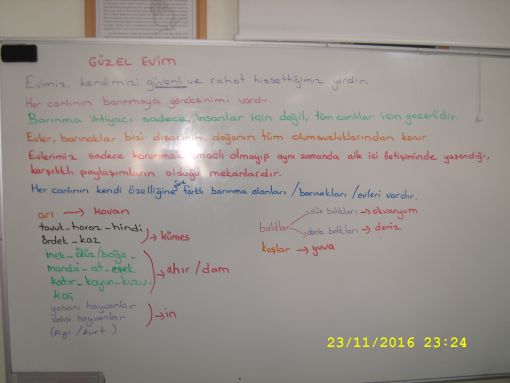 GÜZEL EVİM
Evimiz, kendimizi güvenli ve rahat hissettiğimiz yerdir.
Her canlının barınmaya gereksinimi vardır.
Barınma ihtiyacı sadece, insanlar için değil, tüm canlılar için geçerlidir.
Evler, barınaklar bizi dışarının, doğanın tüm olumsuzluklarından korur.
Evlerimiz sadece korunmak amaçlı olmayıp aynı zamanda aile içi iletişiminde yaşandığı,
karşılıklı paylaşımların olduğu mekanlardır.
Her canlının kendi özelliğine göre farklı barınma alanları /barınakları /evleri vardır.
arı → kovan
tavuk-horoz-hindi
ördek-kaz
→ kümes
inek-öküz/boğa-
manda-at-eşek
katır-koyun-kuzu
koç
→ ahır/dam
yabani hayvanlar
vahşi hayvanlar
(Ayı /kurt)
→ in
balıklar
süs balıkları → akvaryum
deniz balıkları → deniz
kuşlar → yuva
23/11/2016 23:24